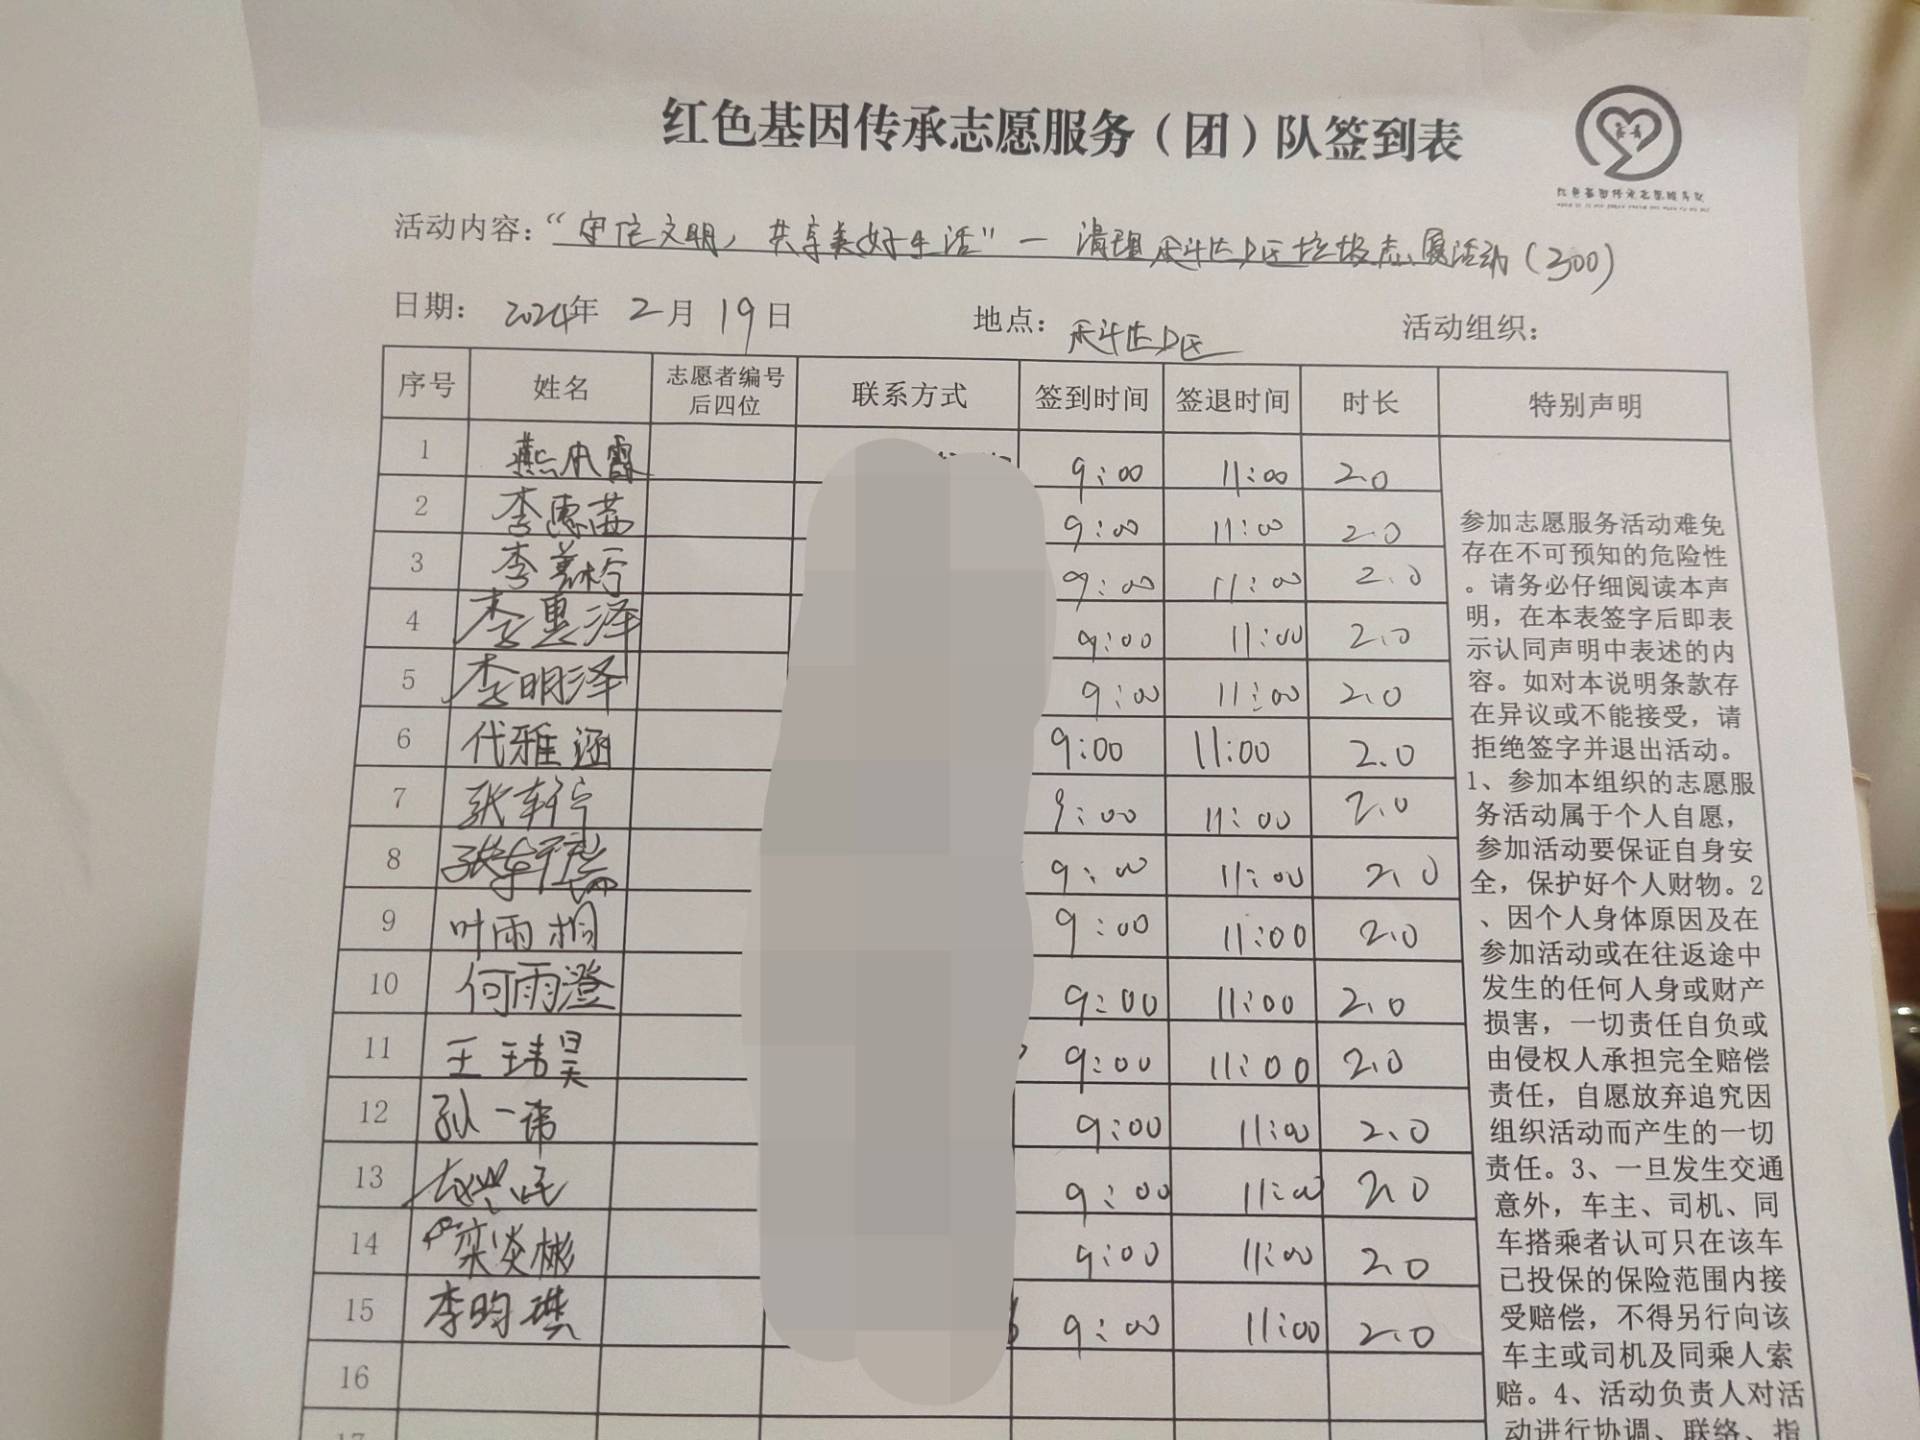 红色基因传承志愿服务（团）队签到表
红色基因传承志愿服务队
活动内容：“守信文明，共享美好生活”—清理社区垃圾志愿活动（300）
日期：2024年 2月 19日 地点：社区 活动组织：
序号 姓名 志愿者编号后四位 联系方式 签到时间 签退时间 时长 特别声明
1 燕 霞 9:00 11:00 2.0
2 李惠茜 9:00 11:00 2.0
3 李 9:00 11:00 2.0
4 李惠泽 9:00 11:00 2.0
5 李明泽 9:00 11:00 2.0
6 代雅涵 9:00 11:00 2.0
7 张轩宁 9:00 11:00 2.0
8 张轩 9:00 11:00 2.0
9 叶雨桐 9:00 11:00 2.0
10 何雨澄 9:00 11:00 2.0
11 王玮昊 9:00 11:00 2.0
12 孙一诺 9:00 11:00 2.0
13 9:00 11:00 2.0
14 栾炎彬 9:00 11:00 2.0
15 李昀琪 9:00 11:00 2.0
16
17
参加志愿服务活动难免
存在不可预知的危险性
。请务必仔细阅读本声
明，在本表签字后即表
示认同声明中表述的内
容。如对本说明条款存
在异议或不能接受，请
拒绝签字并退出活动。
1、参加本组织的志愿服
务活动属于个人自愿，
参加活动要保证自身安
全，保护好个人财物。2
、因个人身体原因及在
参加活动或在往返途中
发生的任何人身或财产
损害，一切责任自负或
由侵权人承担完全赔偿
责任，自愿放弃追究因
组织活动而产生的一切
责任。3、一旦发生交通
意外，车主、司机、同
车搭乘者认可只在该车
已投保的保险范围内接
受赔偿，不得另行向该
车主或司机及同乘人索
赔。4、活动负责人对活
动进行协调、联络、指